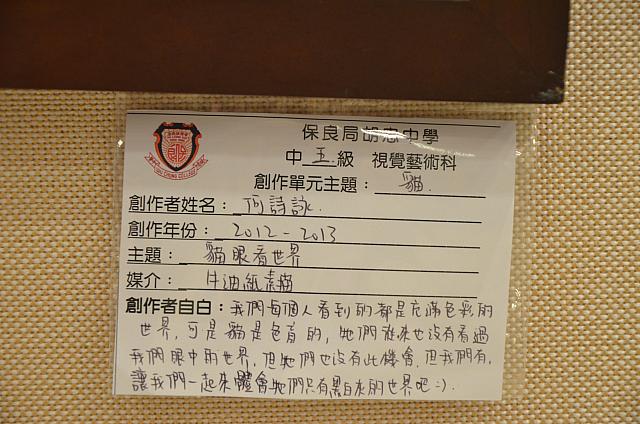 保良局胡忠中學
中 五 級 視覺藝術科
創作單元主題： 貓.
創作者姓名： 何詩詠.
創作年份： 2012 - 2013
主題： 貓眼看世界
媒介： 牛油紙素描
創作者自白：我們每個人看到的都是充滿色彩的
世界, 可是貓是色盲的, 牠們從來也沒有看過
我們眼中的世界, 但牠們也沒有此機會. 但我們有,
讓我們一起來體會牠們只有黑白灰的世界吧 :).